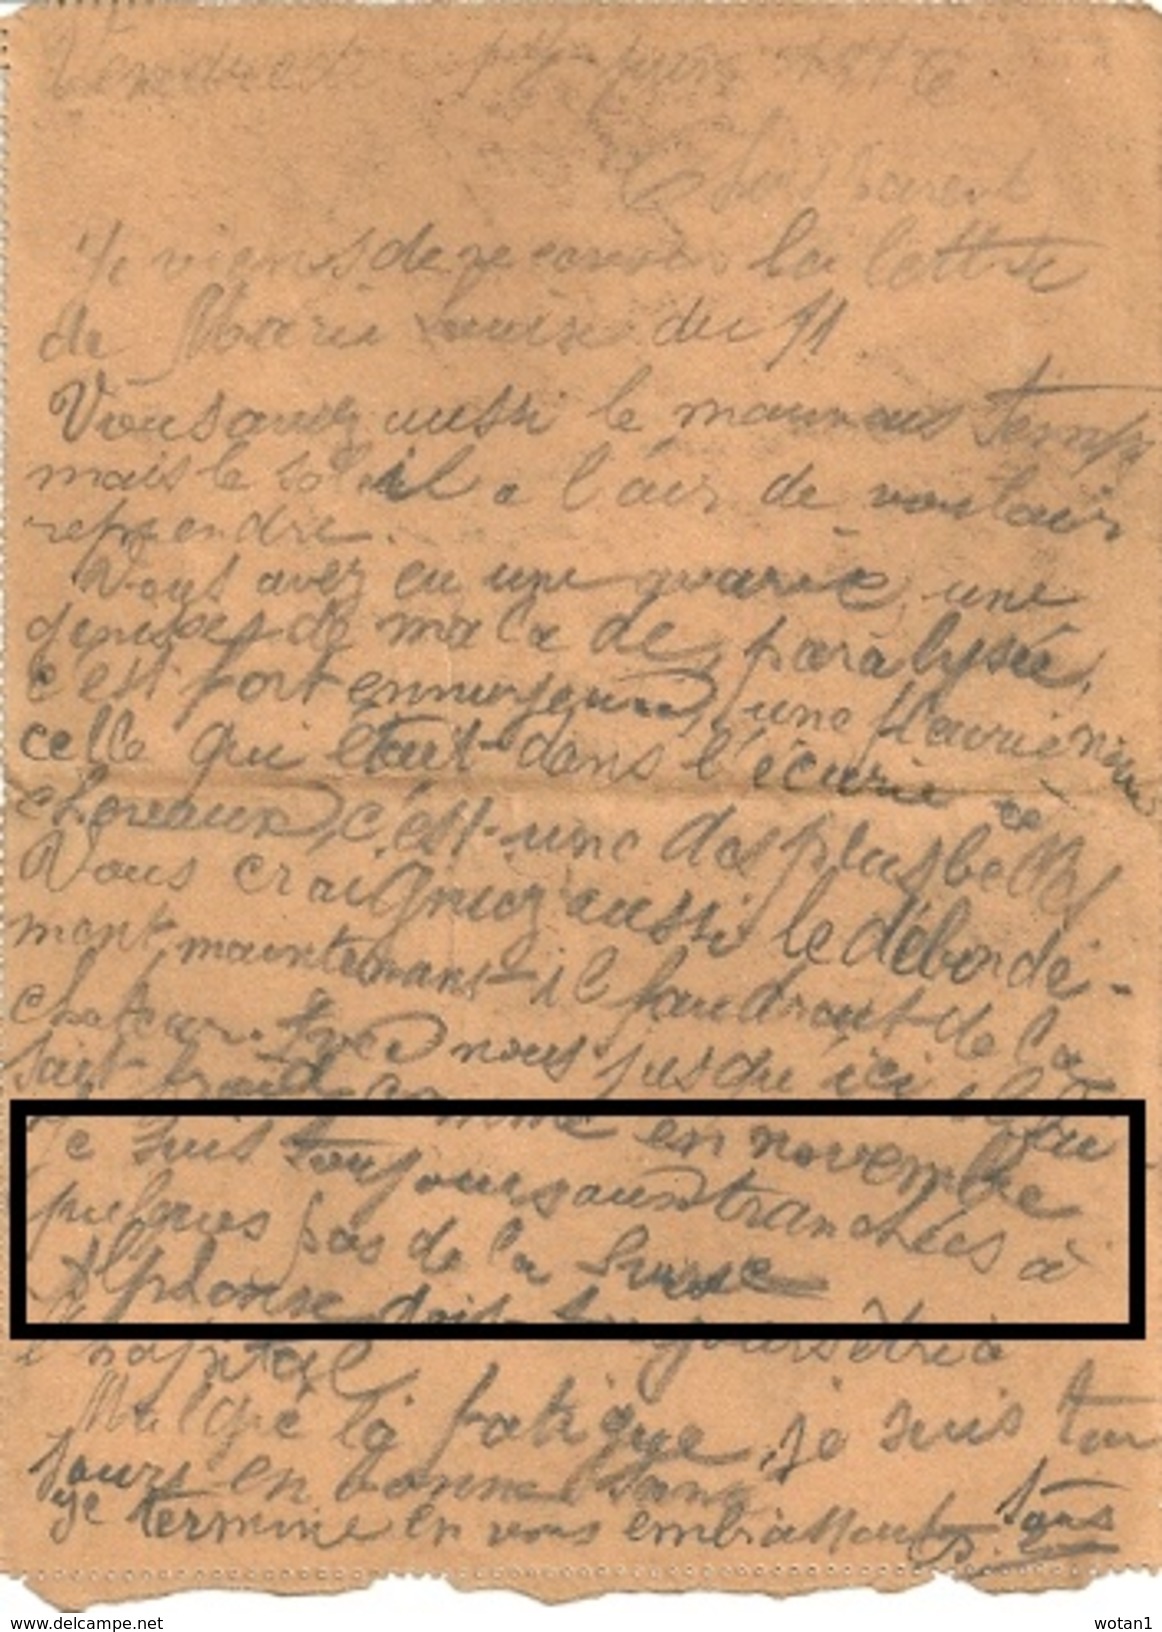 Vendredi juin 1916
Chers Parents
Je viens de recevoir la lettre
de Marie Louise du 11.
Vous avez aussi le mauvais temps
mais le soleil a l'air de vouloir
reprendre.
Vous avez eu une une
de malade, paralysée,
c'est fort ennuyeux, une
celle qui était dans l'écurie
chevaux, c'est une des plus belles
Vous craigniez aussi le débordé-
ment, maintenant il faudrait de la
chaleur. nous jusqu'ici il
fait froid comme en novembre
Je suis toujours aux tranchées à
quelques pas de la Suisse
Alphonse doit toujours être à
l'hopital
Malgré la fatigue, je suis tou
jours en bonne
Je termine en vous embrassant tous
wotan1
https://www.delcampe.net